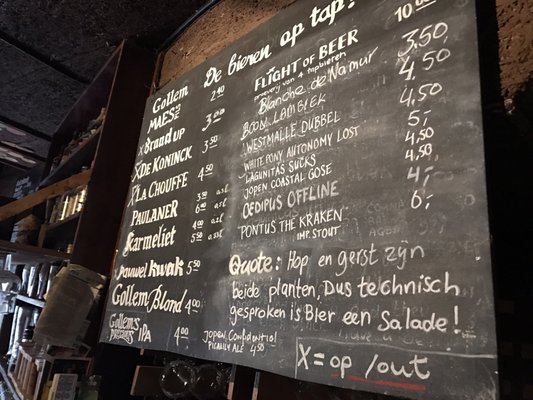 De bieren op tap!
Gollem
MAES 2.40
X Brand up 3.00
X DE KONINCK 3.50
X LA CHOUFFE 4.50
PAULANER 3.50
6.40
Karmeliet 4.00
5.50
Pauwel kwak 5.50
Gollem Blond 4.00
Gollem's
IPA 4.00
FLIGHT OF BEER 10.00
van 4 tapbieren
Blanche de Namur 3.50
BOON LAMBIEK 4.50
WESTMALLE DUBBEL 4.50
WHITE PONY AUTONOMY LOST 5,-
LAGUNITAS SUCKS 4.50
JOPEN COASTAL GOSE 4.50
OEDIPUS OFFLINE 4,-
PONTUS THE KRAKEN 6,-
IMP. STOUT
Quote: Hop en gerst zijn
beide planten, Dus technisch
gesproken is Bier een Salade!
JOPEN Confidential
ALE 4.50
X = op / out